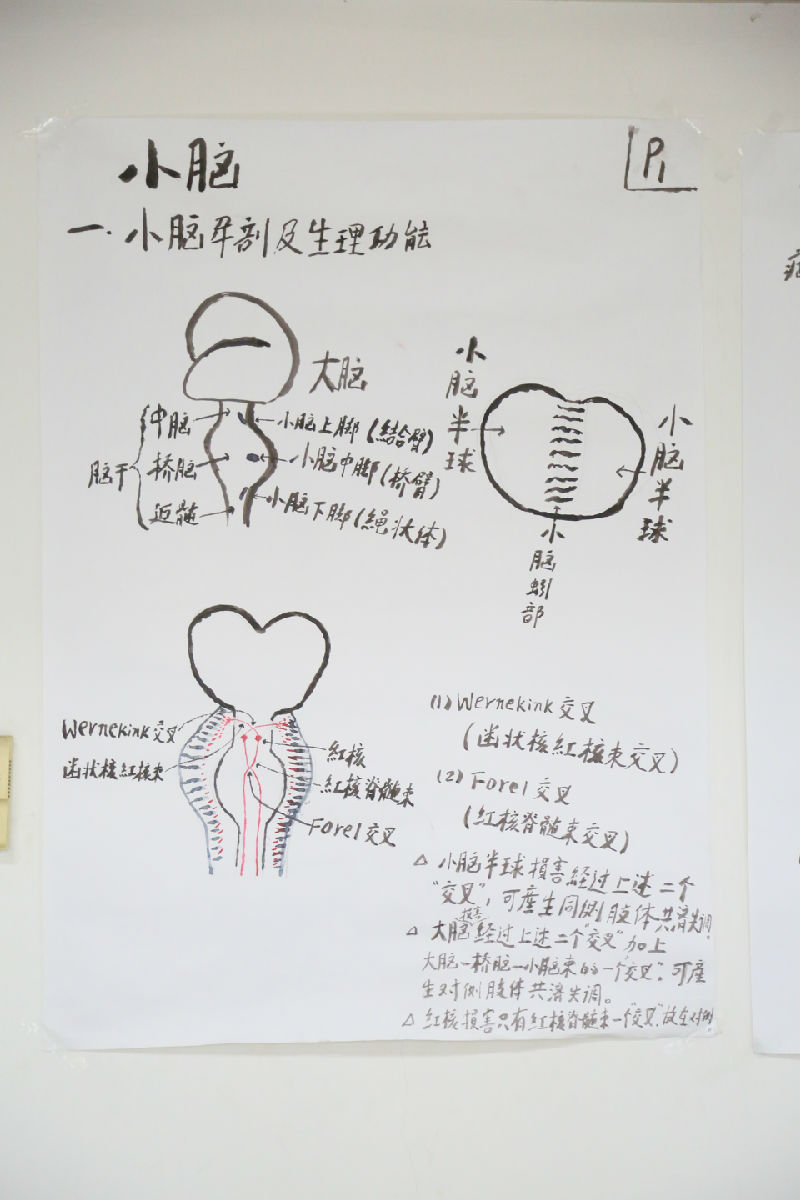 小脑
P1
一. 小脑解剖及生理功能
大脑
中脑
脑干
桥脑
延髓
小脑上脚(結合臂)
小脑中脚(桥臂)
小脑下脚(绳状体)
小脑半球
小脑半球
小脑蚓部
Wernekink交叉
齿状核紅核束
紅核
紅核脊髓束
Forel交叉
(1) Wernekink交叉
(齿状核紅核束交叉)
(2) Forel交叉
(紅核脊髓束交叉)
△ 小脑半球損害経过上述二个
"交叉",可產生同側肢体共濟失调.
△ 大脑損害経过上述二个"交叉"加上
大脑一桥脑一小脑束的一个"交叉".可產
生对侧肢体共濟失调。
△ 紅核損害只有紅核脊髓束一个"交叉",故在对侧